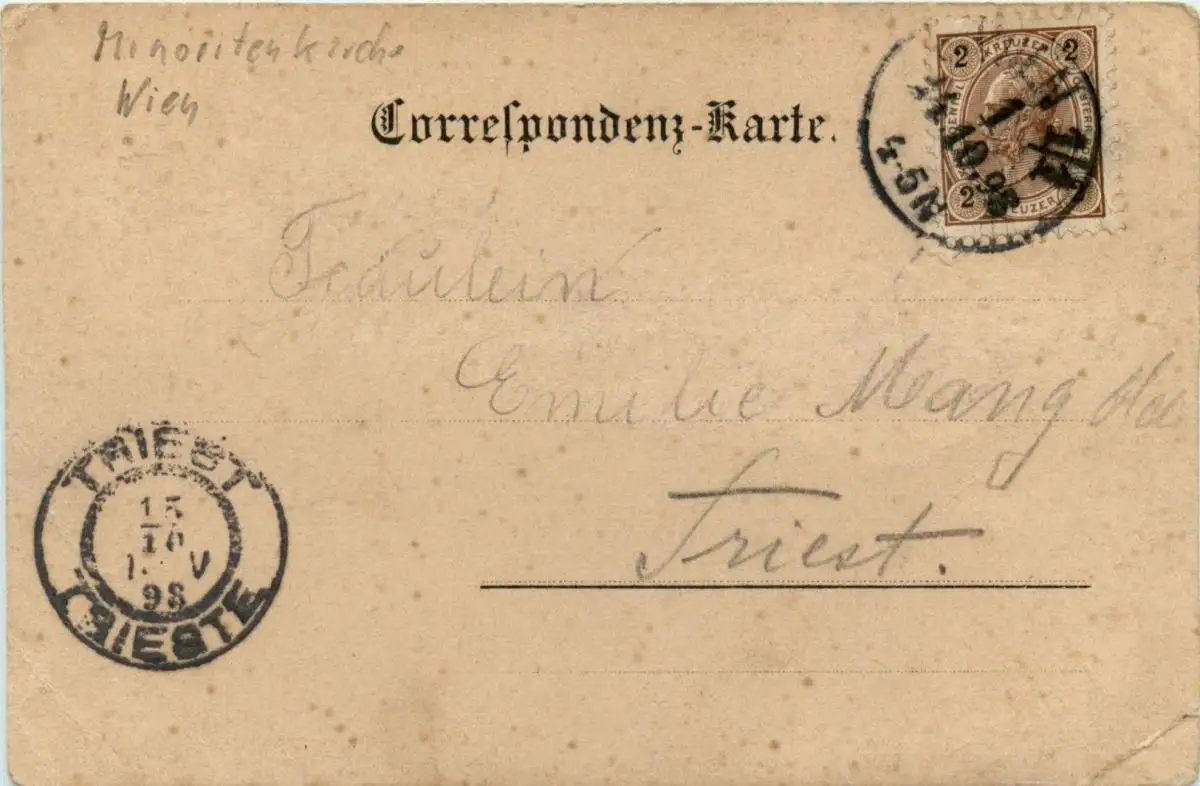 Minoritenkirche
Wien
Correſpondenz-Karte.
2 KREUZER 2
2 KREUZER 2
1/1
1
10.98
4-5N
Fräulein
Emilie Mang
Triest.
TRIEST
15
10
V
98
TRIESTE